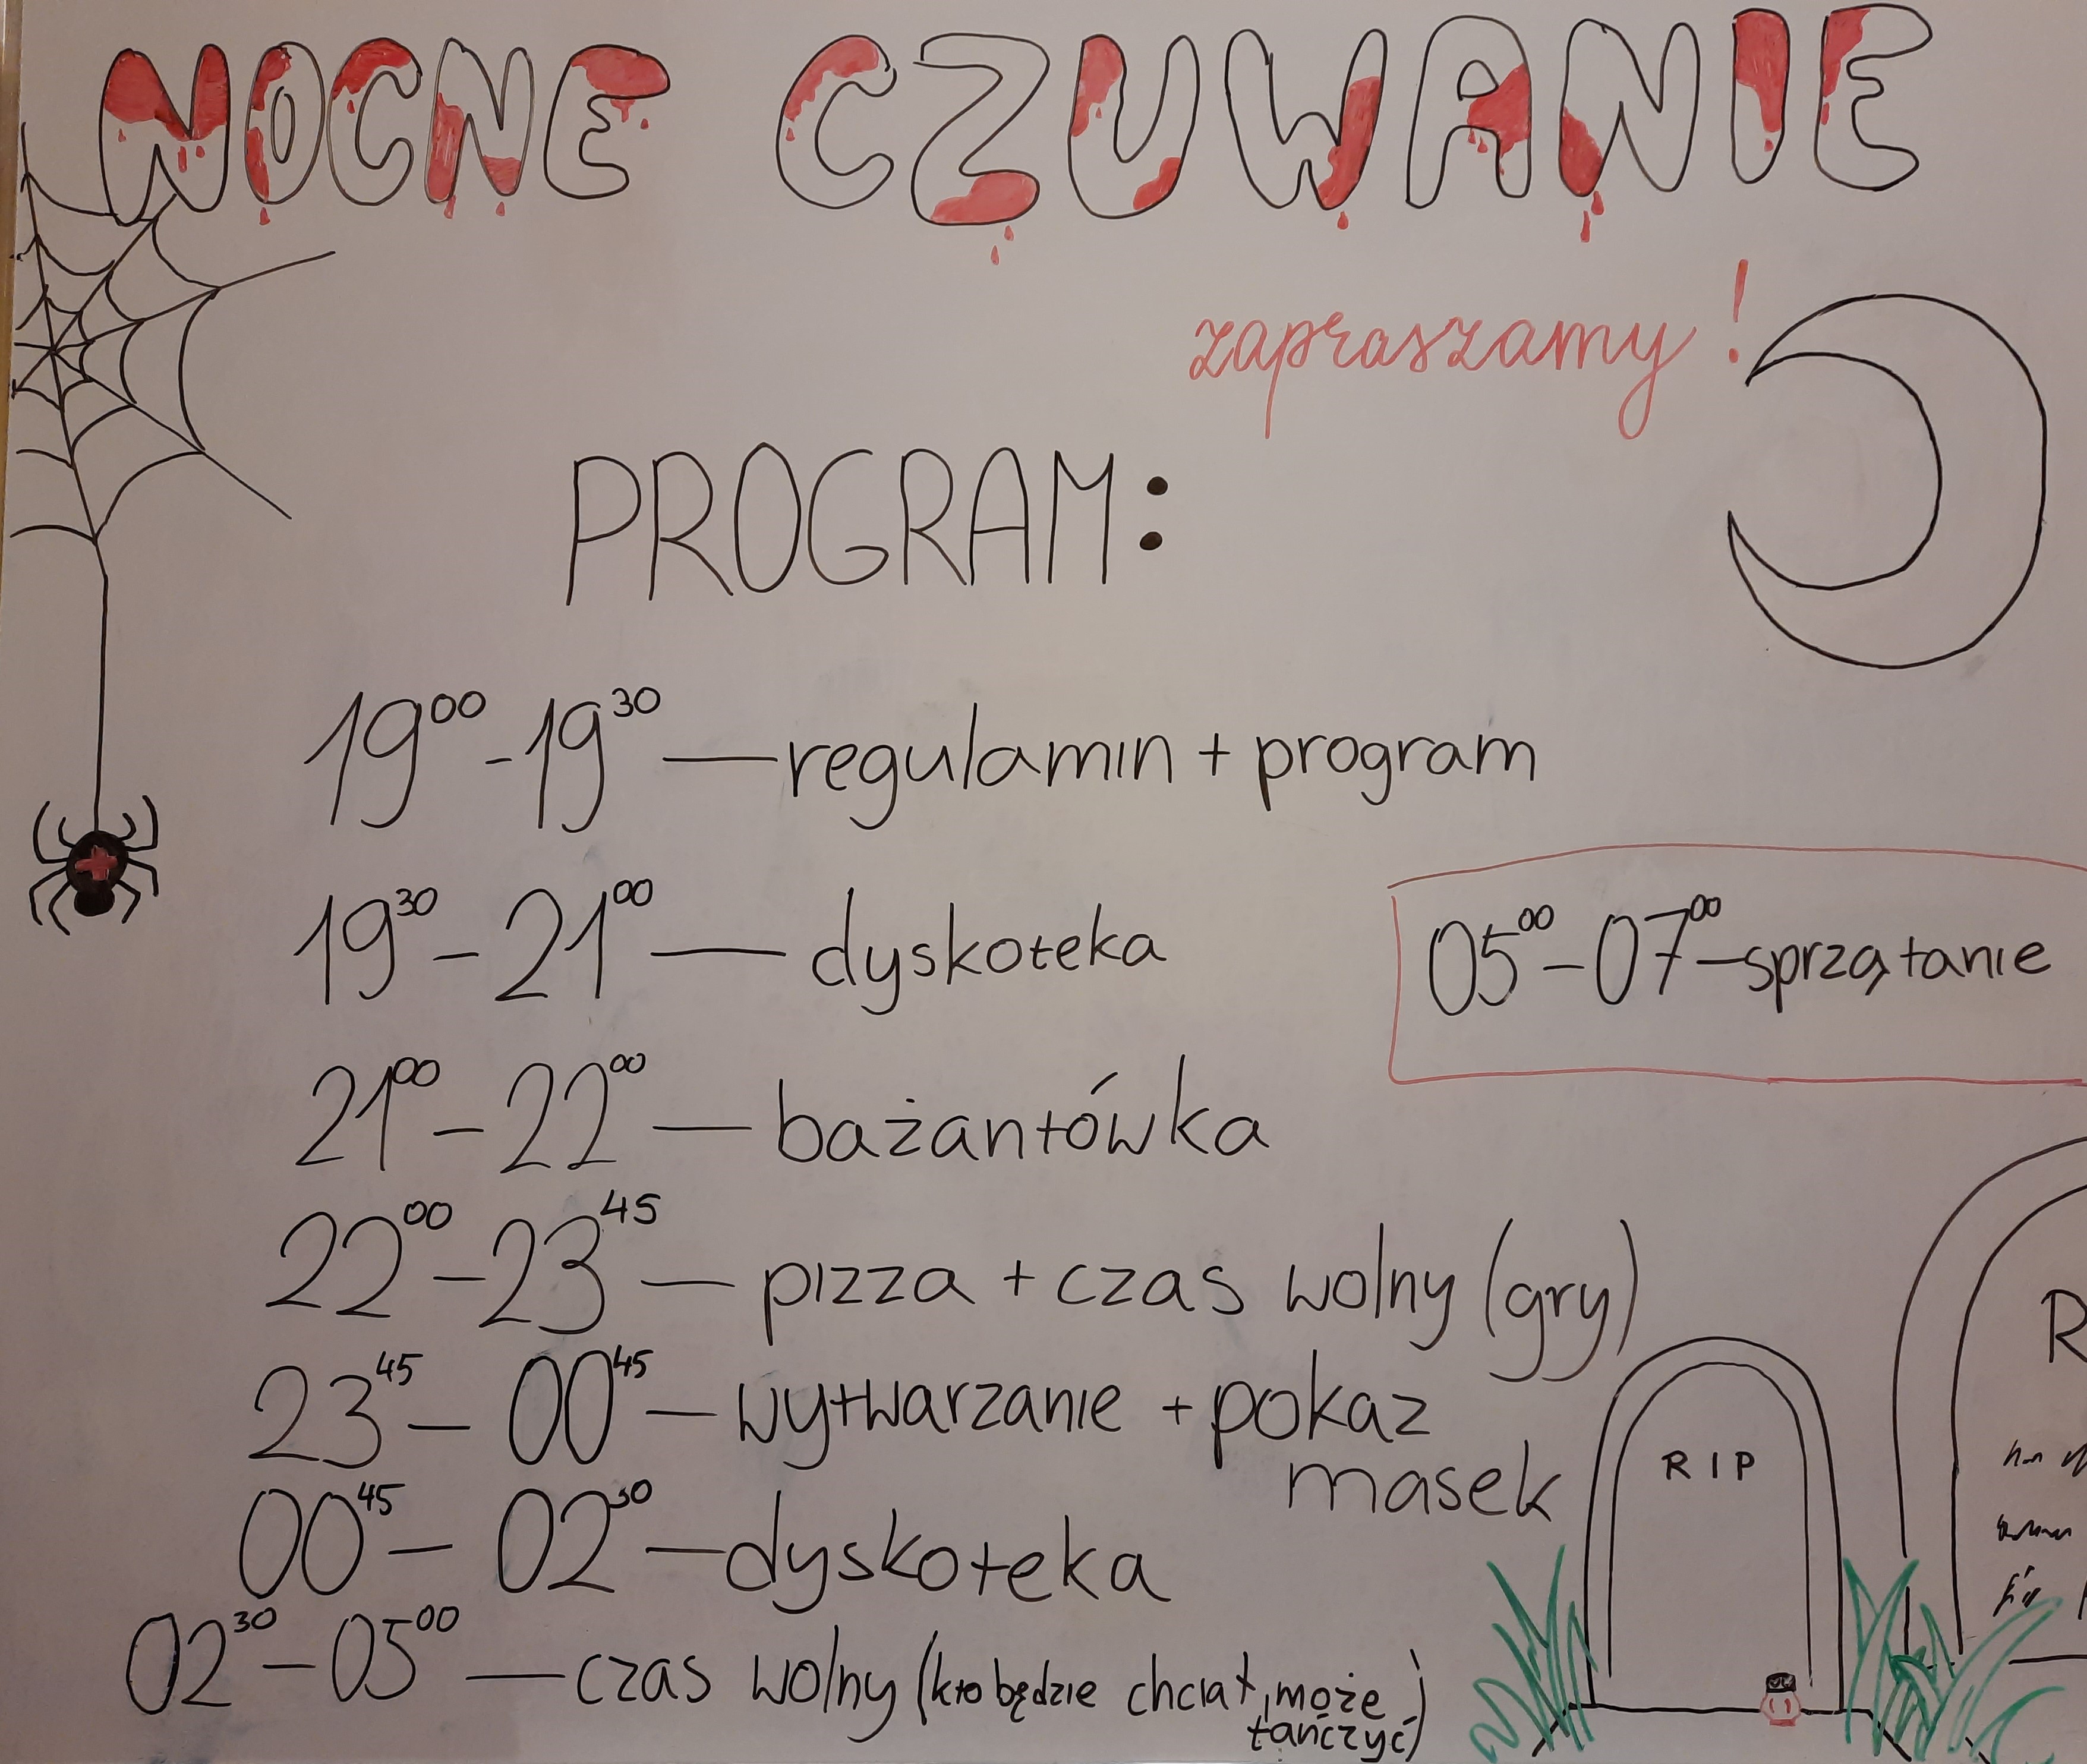 NOCNE CZUWANIE
zapraszamy!
PROGRAM:
19⁰⁰-19³⁰ — regulamin + program
19³⁰ – 21⁰⁰ — dyskoteka
05⁰⁰ – 07⁰⁰ – sprzątanie
21⁰⁰ – 22⁰⁰ — bażantówka
22⁰⁰ – 23⁴⁵ — pizza + czas wolny (gry)
23⁴⁵ – 00⁴⁵ — wytwarzanie + pokaz
masek
00⁴⁵ – 02³⁰ — dyskoteka
02³⁰ – 05⁰⁰ — czas wolny (kto będzie chciał, może
tańczyć)
RIP
R